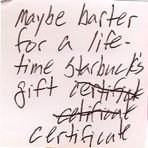 maybe barter
for a life-
time starbuck's
gift certifict
cetificat
certificate